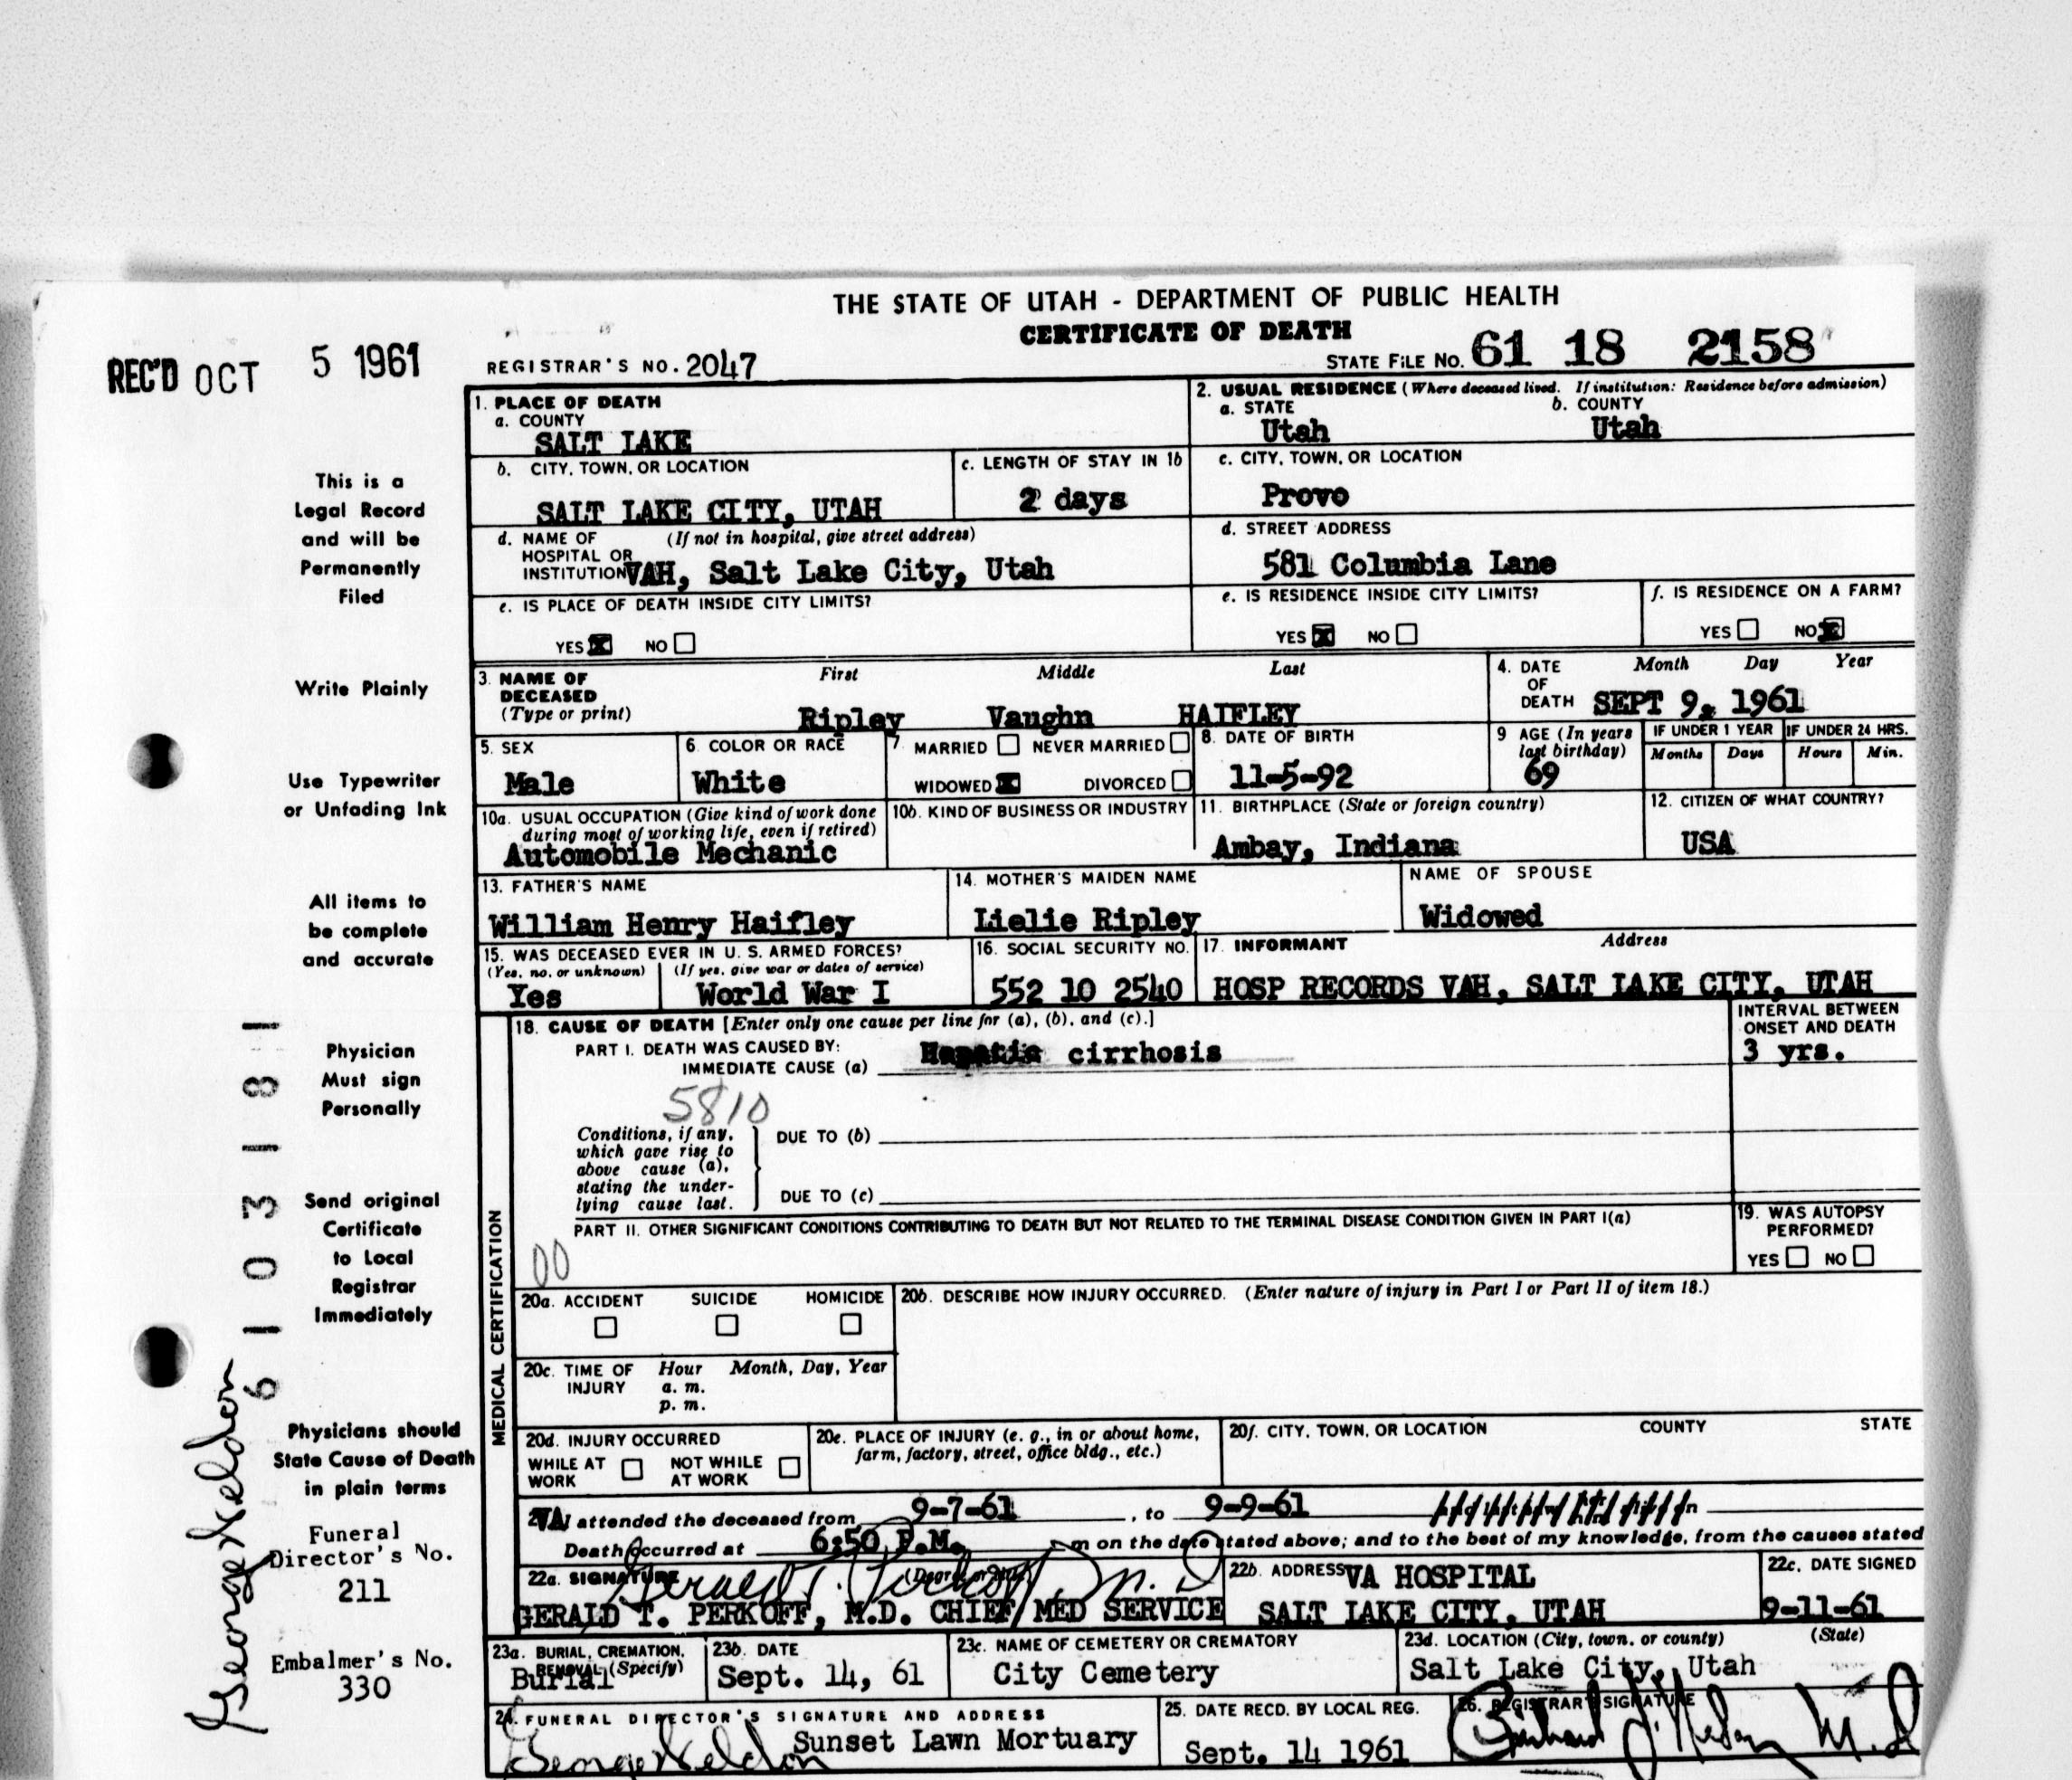 THE STATE OF UTAH - DEPARTMENT OF PUBLIC HEALTH
CERTIFICATE OF DEATH
REC'D OCT 5 1961
REGISTRAR'S NO. 2047
STATE FILE NO. 61 18 2158
1. PLACE OF DEATH
a. COUNTY
SALT LAKE
2. USUAL RESIDENCE (Where deceased lived. If institution: Residence before admission)
a. STATE b. COUNTY
Utah Utah
b. CITY, TOWN, OR LOCATION
SALT LAKE CITY, UTAH
c. LENGTH OF STAY IN 1b
2 days
c. CITY, TOWN, OR LOCATION
Provo
d. NAME OF (If not in hospital, give street address)
HOSPITAL OR
INSTITUTION VAH, Salt Lake City, Utah
d. STREET ADDRESS
581 Columbia Lane
e. IS PLACE OF DEATH INSIDE CITY LIMITS?
YES X NO
e. IS RESIDENCE INSIDE CITY LIMITS?
YES X NO
f. IS RESIDENCE ON A FARM?
YES NO X
3. NAME OF DECEASED
(Type or print)
First Middle Last
Ripley Vaughn HAIFLEY
4. DATE OF DEATH
Month Day Year
SEPT 9, 1961
5. SEX
Male
6. COLOR OR RACE
White
7. MARRIED NEVER MARRIED
WIDOWED X DIVORCED
8. DATE OF BIRTH
11-5-92
9 AGE (In years
last birthday)
69
IF UNDER 1 YEAR
Months Days
IF UNDER 24 HRS.
Hours Min.
10a. USUAL OCCUPATION (Give kind of work done
during most of working life, even if retired)
Automobile Mechanic
10b. KIND OF BUSINESS OR INDUSTRY
11. BIRTHPLACE (State or foreign country)
Ambay, Indiana
12. CITIZEN OF WHAT COUNTRY?
USA
13. FATHER'S NAME
William Henry Haifley
14. MOTHER'S MAIDEN NAME
Lielie Ripley
NAME OF SPOUSE
Widowed
15. WAS DECEASED EVER IN U. S. ARMED FORCES?
(Yes, no, or unknown) (If yes, give war or dates of service)
Yes World War I
16. SOCIAL SECURITY NO.
552 10 2540
17. INFORMANT Address
HOSP RECORDS VAH, SALT LAKE CITY, UTAH
MEDICAL CERTIFICATION
18. CAUSE OF DEATH [Enter only one cause per line for (a), (b), and (c).]
PART I. DEATH WAS CAUSED BY:
IMMEDIATE CAUSE (a) Hepatic cirrhosis
INTERVAL BETWEEN
ONSET AND DEATH
3 yrs.
5810
Conditions, if any,
which gave rise to
above cause (a),
stating the under-
lying cause last.
DUE TO (b)
DUE TO (c)
PART II. OTHER SIGNIFICANT CONDITIONS CONTRIBUTING TO DEATH BUT NOT RELATED TO THE TERMINAL DISEASE CONDITION GIVEN IN PART I(a)
00
19. WAS AUTOPSY
PERFORMED?
YES NO
20a. ACCIDENT SUICIDE HOMICIDE
20b. DESCRIBE HOW INJURY OCCURRED. (Enter nature of injury in Part I or Part II of item 18.)
20c. TIME OF INJURY
Hour Month, Day, Year
a. m.
p. m.
20d. INJURY OCCURRED
WHILE AT WORK NOT WHILE AT WORK
20e. PLACE OF INJURY (e. g., in or about home,
farm, factory, street, office bldg., etc.)
20f. CITY, TOWN, OR LOCATION COUNTY STATE
VA I attended the deceased from 9-7-61, to 9-9-61
Death occurred at 6:50 P.M. m on the date stated above; and to the best of my knowledge, from the causes stated
22a. SIGNATURE
Gerald T. Perkoff M. D.
GERALD T. PERKOFF, M.D. CHIEF MED SERVICE
22b. ADDRESS VA HOSPITAL
SALT LAKE CITY, UTAH
22c. DATE SIGNED
9-11-61
23a. BURIAL, CREMATION,
REMOVAL (Specify)
Burial
23b. DATE
Sept. 14, 61
23c. NAME OF CEMETERY OR CREMATORY
City Cemetery
23d. LOCATION (City, town, or county) (State)
Salt Lake City, Utah
24. FUNERAL DIRECTOR'S SIGNATURE AND ADDRESS
George Weldon Sunset Lawn Mortuary
25. DATE RECD. BY LOCAL REG.
Sept. 14 1961
26. REGISTRAR'S SIGNATURE
M.D
This is a
Legal Record
and will be
Permanently
Filed
Write Plainly
Use Typewriter
or Unfading Ink
All items to
be complete
and accurate
Physician
Must sign
Personally
Send original
Certificate
to Local
Registrar
Immediately
Physicians should
State Cause of Death
in plain terms
Funeral
Director's No.
211
Embalmer's No.
330
6 1 0 3 1 8 1
George Weldon